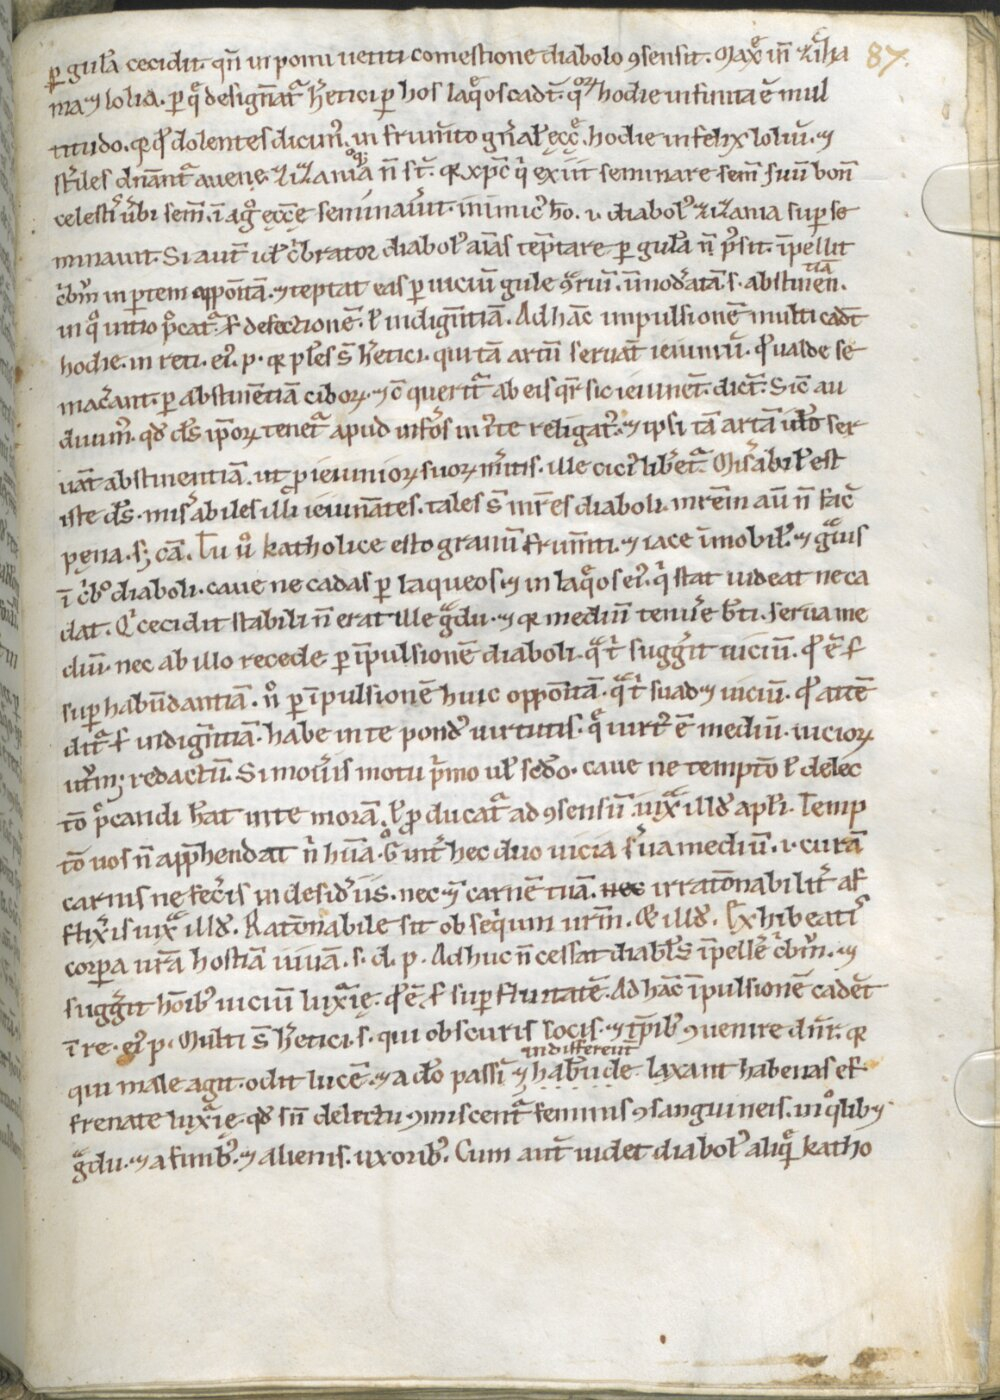 ꝑ gulā cecidit. qn̄ in pomi uetiti comestione diabolo ꝯsensit. Max̄ in̄ ziza 87.
nia ⁊ lolia. ꝑ q̄ designat᷑ h̄etici ꝑ hos laq̄os cadt̄. qͦꝝ hodie infinita ē mul
titudo. ꝙ qͥ dolentes dicim᷒. in frum̄to gn̄al̓ ęccͤ. hodie infelix loliū. ⁊
st̓iles dn̄ant᷑ auene. Zizania n̄ st̄. ꝙ xp̄c qͥ exiit seminare sem̄ suū bon̄
celesti ūbi sem̄. ī agͦ ęccͤ seminauit. inimic᷒ hͦ. .i. diabol᷒ zizania suꝑ se
minauit. Si aut̄ ul̓ c̓brator diabol᷒ aīas tēptare ꝑ gulā n̄ p̓sit. īpellit
c̓bm̄ in ꝑtem oppoītā. ⁊ teptat eas ꝑ uiciū gule ↄ̓riū. īmod̓atā .s. abstinen. tiā
in qͦ uitio p̓cat᷑ .s. defectionē. ł indigentiā. Ad hāc impulsionē multi cadt̄
hodie. in reti. ei᷒. p. ꝙ pl̓es s̄ h̄etici. qui tā artū seruāt ieiuniū. qͥ ualde se
mac̓ant. ꝑ abstinētiā ciboꝝ. ⁊ c̄ querit᷑ ab eis qr̄ sic ieiunet̄. dict̄. Sic au
diuim᷒. qd̓ ds̄ ip̄oꝝ tenet᷑ apud inf̓os in ↄ̓te religat᷒. ⁊ ipsi tā artā ul̓to ser
uāt abstinentiā. ut ꝓ ieiunioꝝ suoꝝ m̓itis. ille cici᷒ lib̓et᷑. Mis̓abil̓ est
iste ds̄. mis̓abiles illi ieiunātes. tales s̄ mr̄es diaboli. mr̄em aū n̄ fac̓
pena. s; cā. Tu ū katholice esto granū frum̄ti. ⁊ iace īmobil̓. ⁊ gͣuis
ī c̓bͦ diaboli. caue ne cadas ꝑ laqueos. ⁊ in laq̄o ei᷒. qͥ stat uideat ne ca
dat. Qͥ cecidit stabili n̄ erat ille gͣdu. ⁊ ꝙ mediū tenu̓e bt̄i. serua me
diū. nec ab illo recede ꝑ īpulsionē diaboli. qͣ t̓ sugg̓it uiciū. qͥ ē .s.
suꝑhabūdantiā. nͦ ꝑ īpulsionē huic oppoītā. qͣ t̓ suad⁊ uiciū. qͥ attē
dit᷑ .s. indigentiā. habe in te pond᷒ uirtutis. qͣ uirt᷒ ē mediū. uicioꝝ
ut̓mq; redactū. Si mou̓is motu p̓mo ul̓ scd̓o. caue ne tempto ł delec
tō p̓candi h̓at in te morā. ł ꝓducat᷑ ad ꝯsensū. iuxͣ illd̓ apl̓i. Temp
tō uos n̄ app̓hendat n̓ hūā. Gͦ int̓ hec duo uicia s̓ua mediū. .i. curā
carnis ne fec̓is in desid̓iis. nec ⁊ carnē tuā. nec irratōnabilit̓ af
flix̓is iuxͣ illd̓. Ratōnabile sit obseqͥum ur̄m. Et illd̓. Exhibeatis
corpora ur̄a hostiā uiuā. s. d. p. Adhuc n̄ cessat diabl̓s īpelle c̓bm̄. ⁊
sugg̓it hōib᷒ uiciū luxͣię. qͥ ē .s. suꝑfluitatē. Ad hāc īpulsionē cadēt
ī re. ei᷒ p. Multi s̄ h̄etici. s. qui obscuris locis. ⁊ tp̄ib᷒ ꝯuenire dn̄r. ꝙ
qui male agit. odit lucē. ⁊ a dō passi ⁊ hab̄ude laxant habenas ef
indifferent̄
frenate luxͣię. qd̓ sn̄ delectu ꝯmiscent᷑ feminis ꝯsanguineis. in qͦlib⁊
gͣdu. ⁊ afinib᷒. ⁊ alienis. uxorib᷒. Cum aut̄ uidet diabol᷒ aliq̄ katho